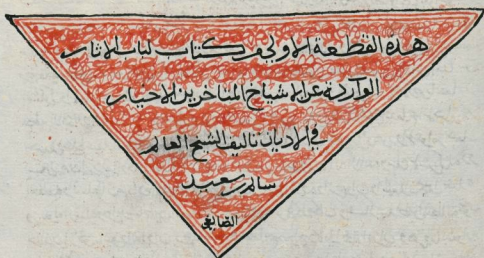 هذه القطعة الاولى من كتاب لباب الاثار
الواردة عن الاشياخ المتاخرين الاخيار
في الاديان تاليف الشيخ العالم
سالم بن سعيد
الصايغي